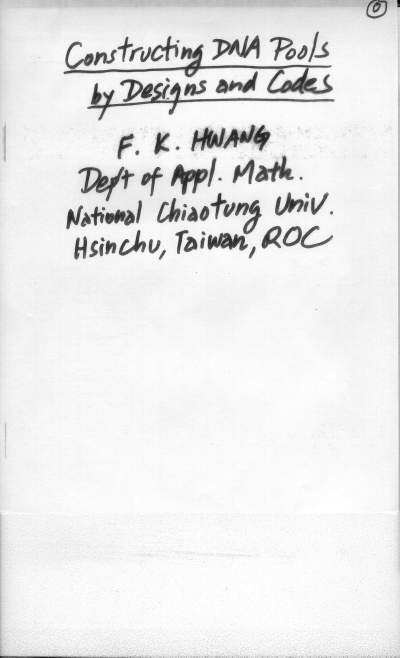 0
Constructing DNA Pools
by Designs and Codes
F. K. HWANG
Dept of Appl. Math.
National Chiaotung Univ.
Hsinchu, Taiwan, ROC